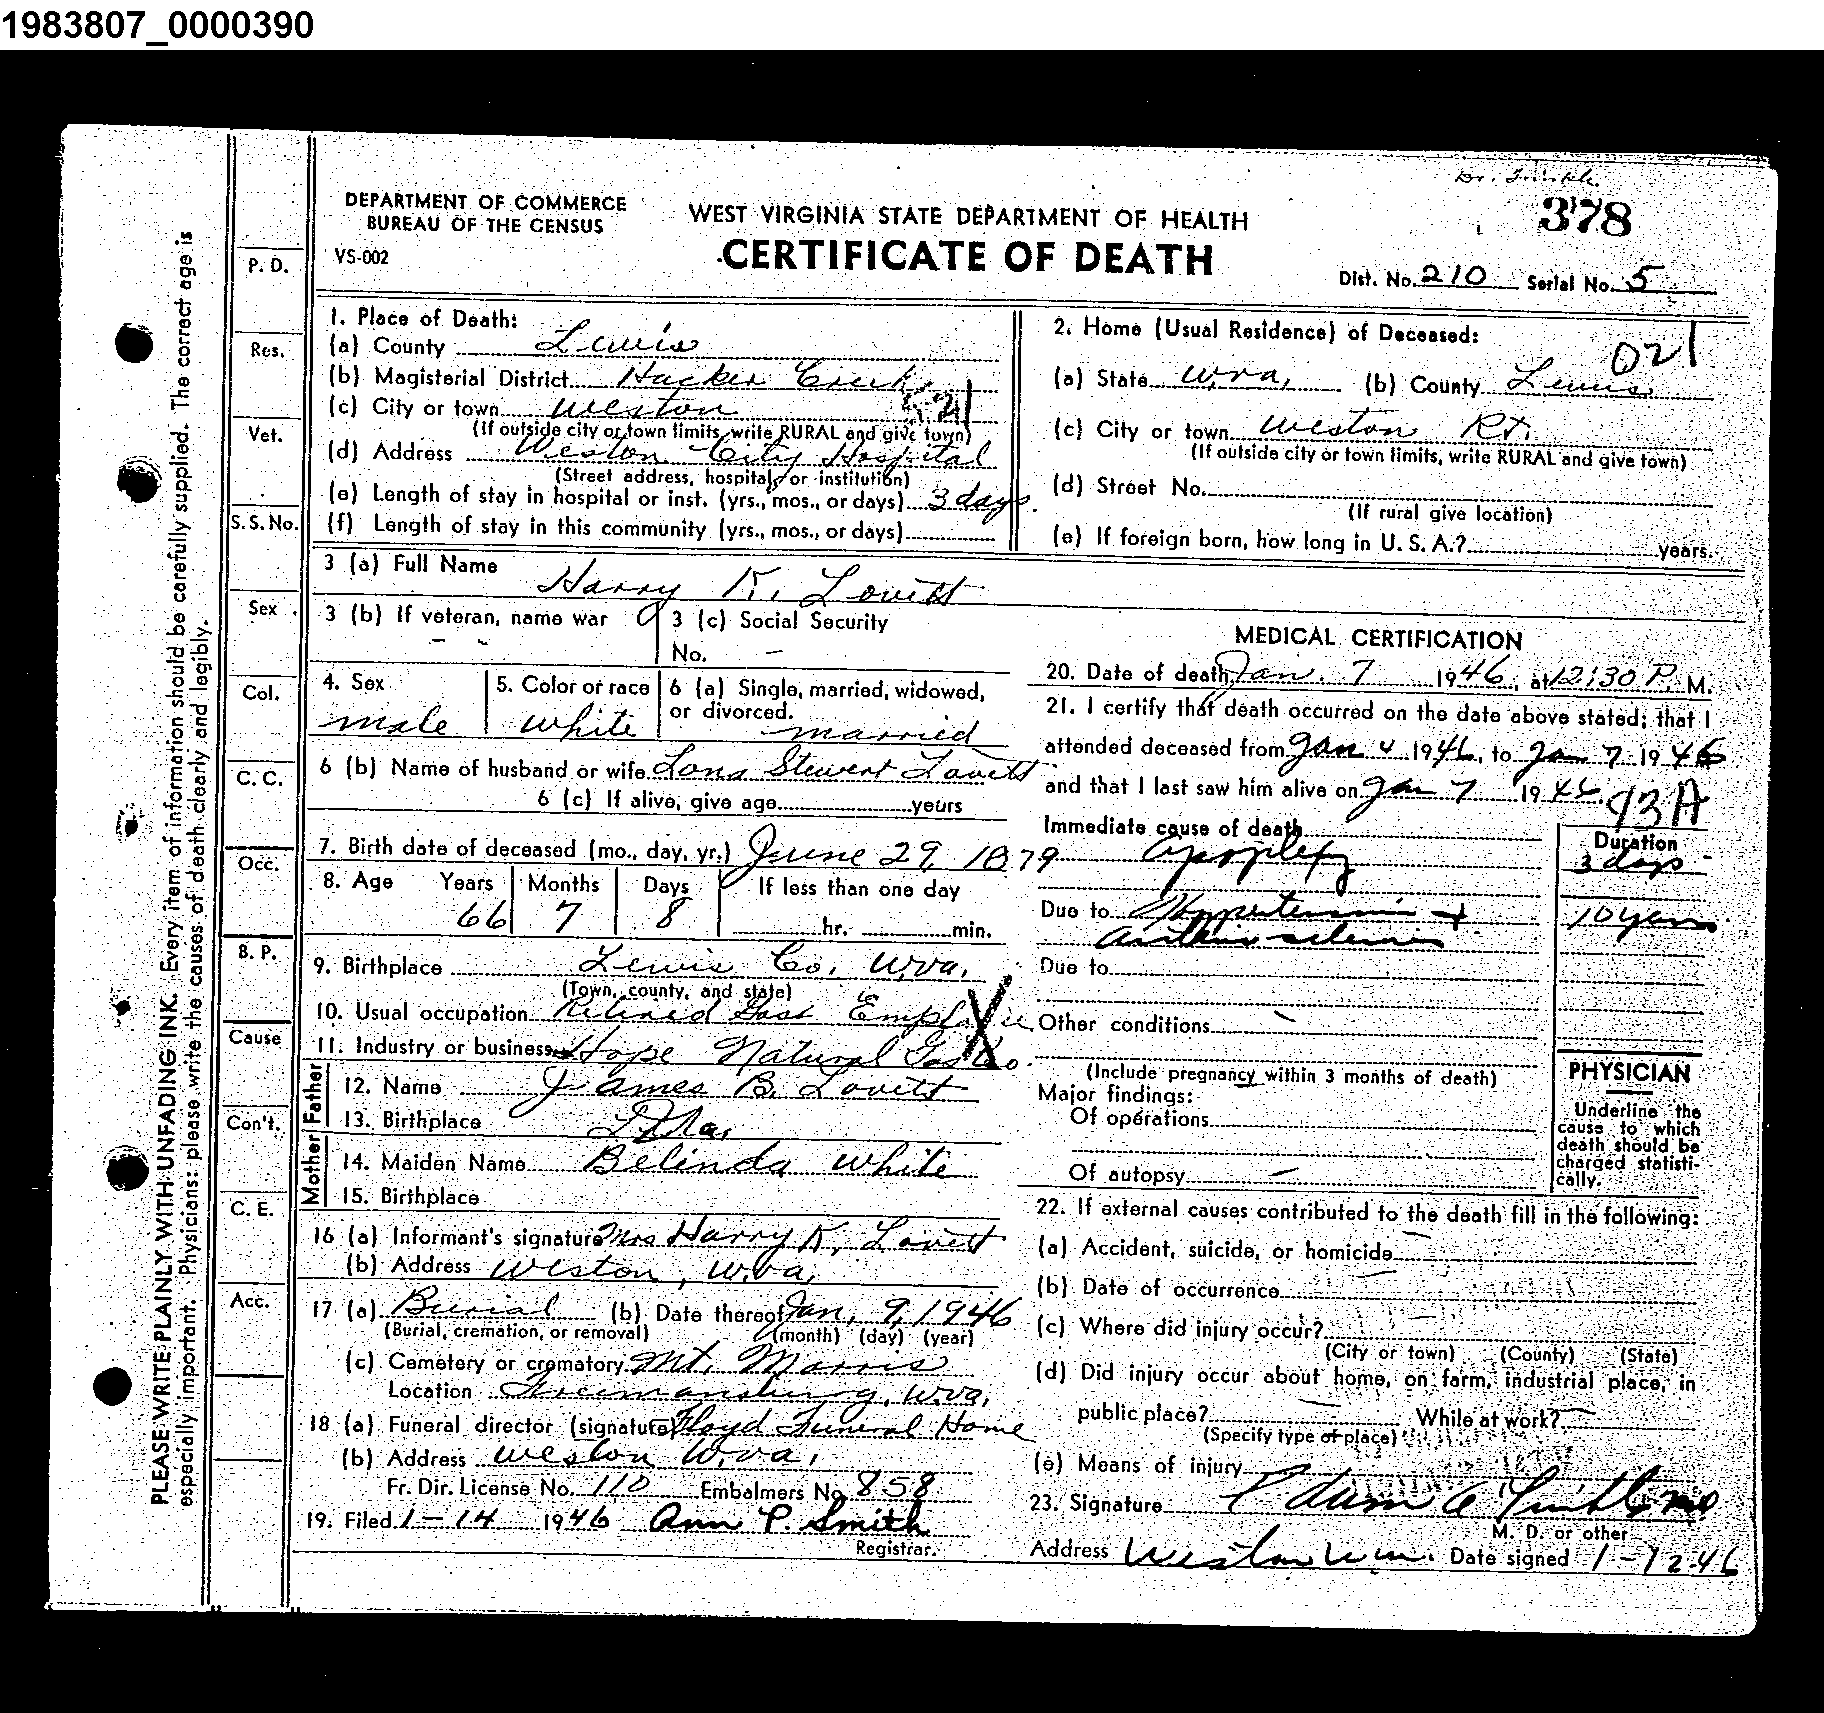 1983807_0000390
378
DEPARTMENT OF COMMERCE
BUREAU OF THE CENSUS
VS-002
WEST VIRGINIA STATE DEPARTMENT OF HEALTH
CERTIFICATE OF DEATH
Dist. No. 210 Serial No. 5
PLEASE WRITE PLAINLY WITH UNFADING INK. Every item of information should be carefully supplied. The correct age is
especially important. Physicians: please write the causes of death clearly and legibly.
P. D.
Res.
Vet.
S. S. No.
Sex
Col.
C. C.
Occ.
B. P.
Cause
Con't.
C. E.
Acc.
1. Place of Death:
(a) County Lewis
(b) Magisterial District Hacker Creek
(c) City or town Weston
521
(If outside city or town limits, write RURAL and give town)
(d) Address Weston City Hospital
(Street address, hospital, or institution)
(e) Length of stay in hospital or inst. (yrs., mos., or days) 3 days.
(f) Length of stay in this community (yrs., mos., or days)
2. Home (Usual Residence) of Deceased:
021
(a) State W.Va. (b) County Lewis
(c) City or town Weston Rt.
(If outside city or town limits, write RURAL and give town)
(d) Street No.
(If rural give location)
(e) If foreign born, how long in U. S. A.? years.
3 (a) Full Name Harry K. Lovitt
3 (b) If veteran, name war - -
3 (c) Social Security
No. -
4. Sex male
5. Color or race white
6 (a) Single, married, widowed,
or divorced. married
6 (b) Name of husband or wife Lona Stewert Lovitt
6 (c) If alive, give age years
7. Birth date of deceased (mo., day, yr.) June 29, 1879
8. Age Years 66 Months 7 Days 8 If less than one day
hr. min.
9. Birthplace Lewis Co. W.Va.
(Town, county, and state)
10. Usual occupation Retired Gas Employee
11. Industry or business Hope Natural Gas Co.
Father
12. Name James B. Lovitt
13. Birthplace
Mother
14. Maiden Name Belinda White
15. Birthplace
16 (a) Informant's signature Mrs Harry K. Lovitt
(b) Address Weston, W.Va.
17 (a) Burial (b) Date thereof Jan. 9, 1946
(Burial, cremation, or removal) (month) (day) (year)
(c) Cemetery or crematory Mt. Morris
Location Freemansburg, W.Va.
18 (a) Funeral director (signature) Floyd Funeral Home
(b) Address Weston W.Va.
Fr. Dir. License No. 110 Embalmers No. 858
19. Filed 1-14 1946 Ann P. Smith
Registrar.
MEDICAL CERTIFICATION
20. Date of death Jan. 7 1946, at 12:30 P. M.
21. I certify that death occurred on the date above stated; that I
attended deceased from Jan 4 1946, to Jan 7 1946
and that I last saw him alive on Jan 7 1946
93A
Immediate cause of death
Apoplexy
Duration
3 days
Due to Hypertension +
Arteriosclerosis
10 years
Due to
Other conditions -
(Include pregnancy within 3 months of death)
Major findings:
Of operations
Of autopsy -
PHYSICIAN
Underline the
cause to which
death should be
charged statisti-
cally.
22. If external causes contributed to the death fill in the following:
(a) Accident, suicide, or homicide
(b) Date of occurrence
(c) Where did injury occur?
(City or town) (County) (State)
(d) Did injury occur about home, on farm, industrial place, in
public place? While at work?
(Specify type of place)
(e) Means of injury
23. Signature
M. D. or other
Address Weston W Va. Date signed 1-12-46